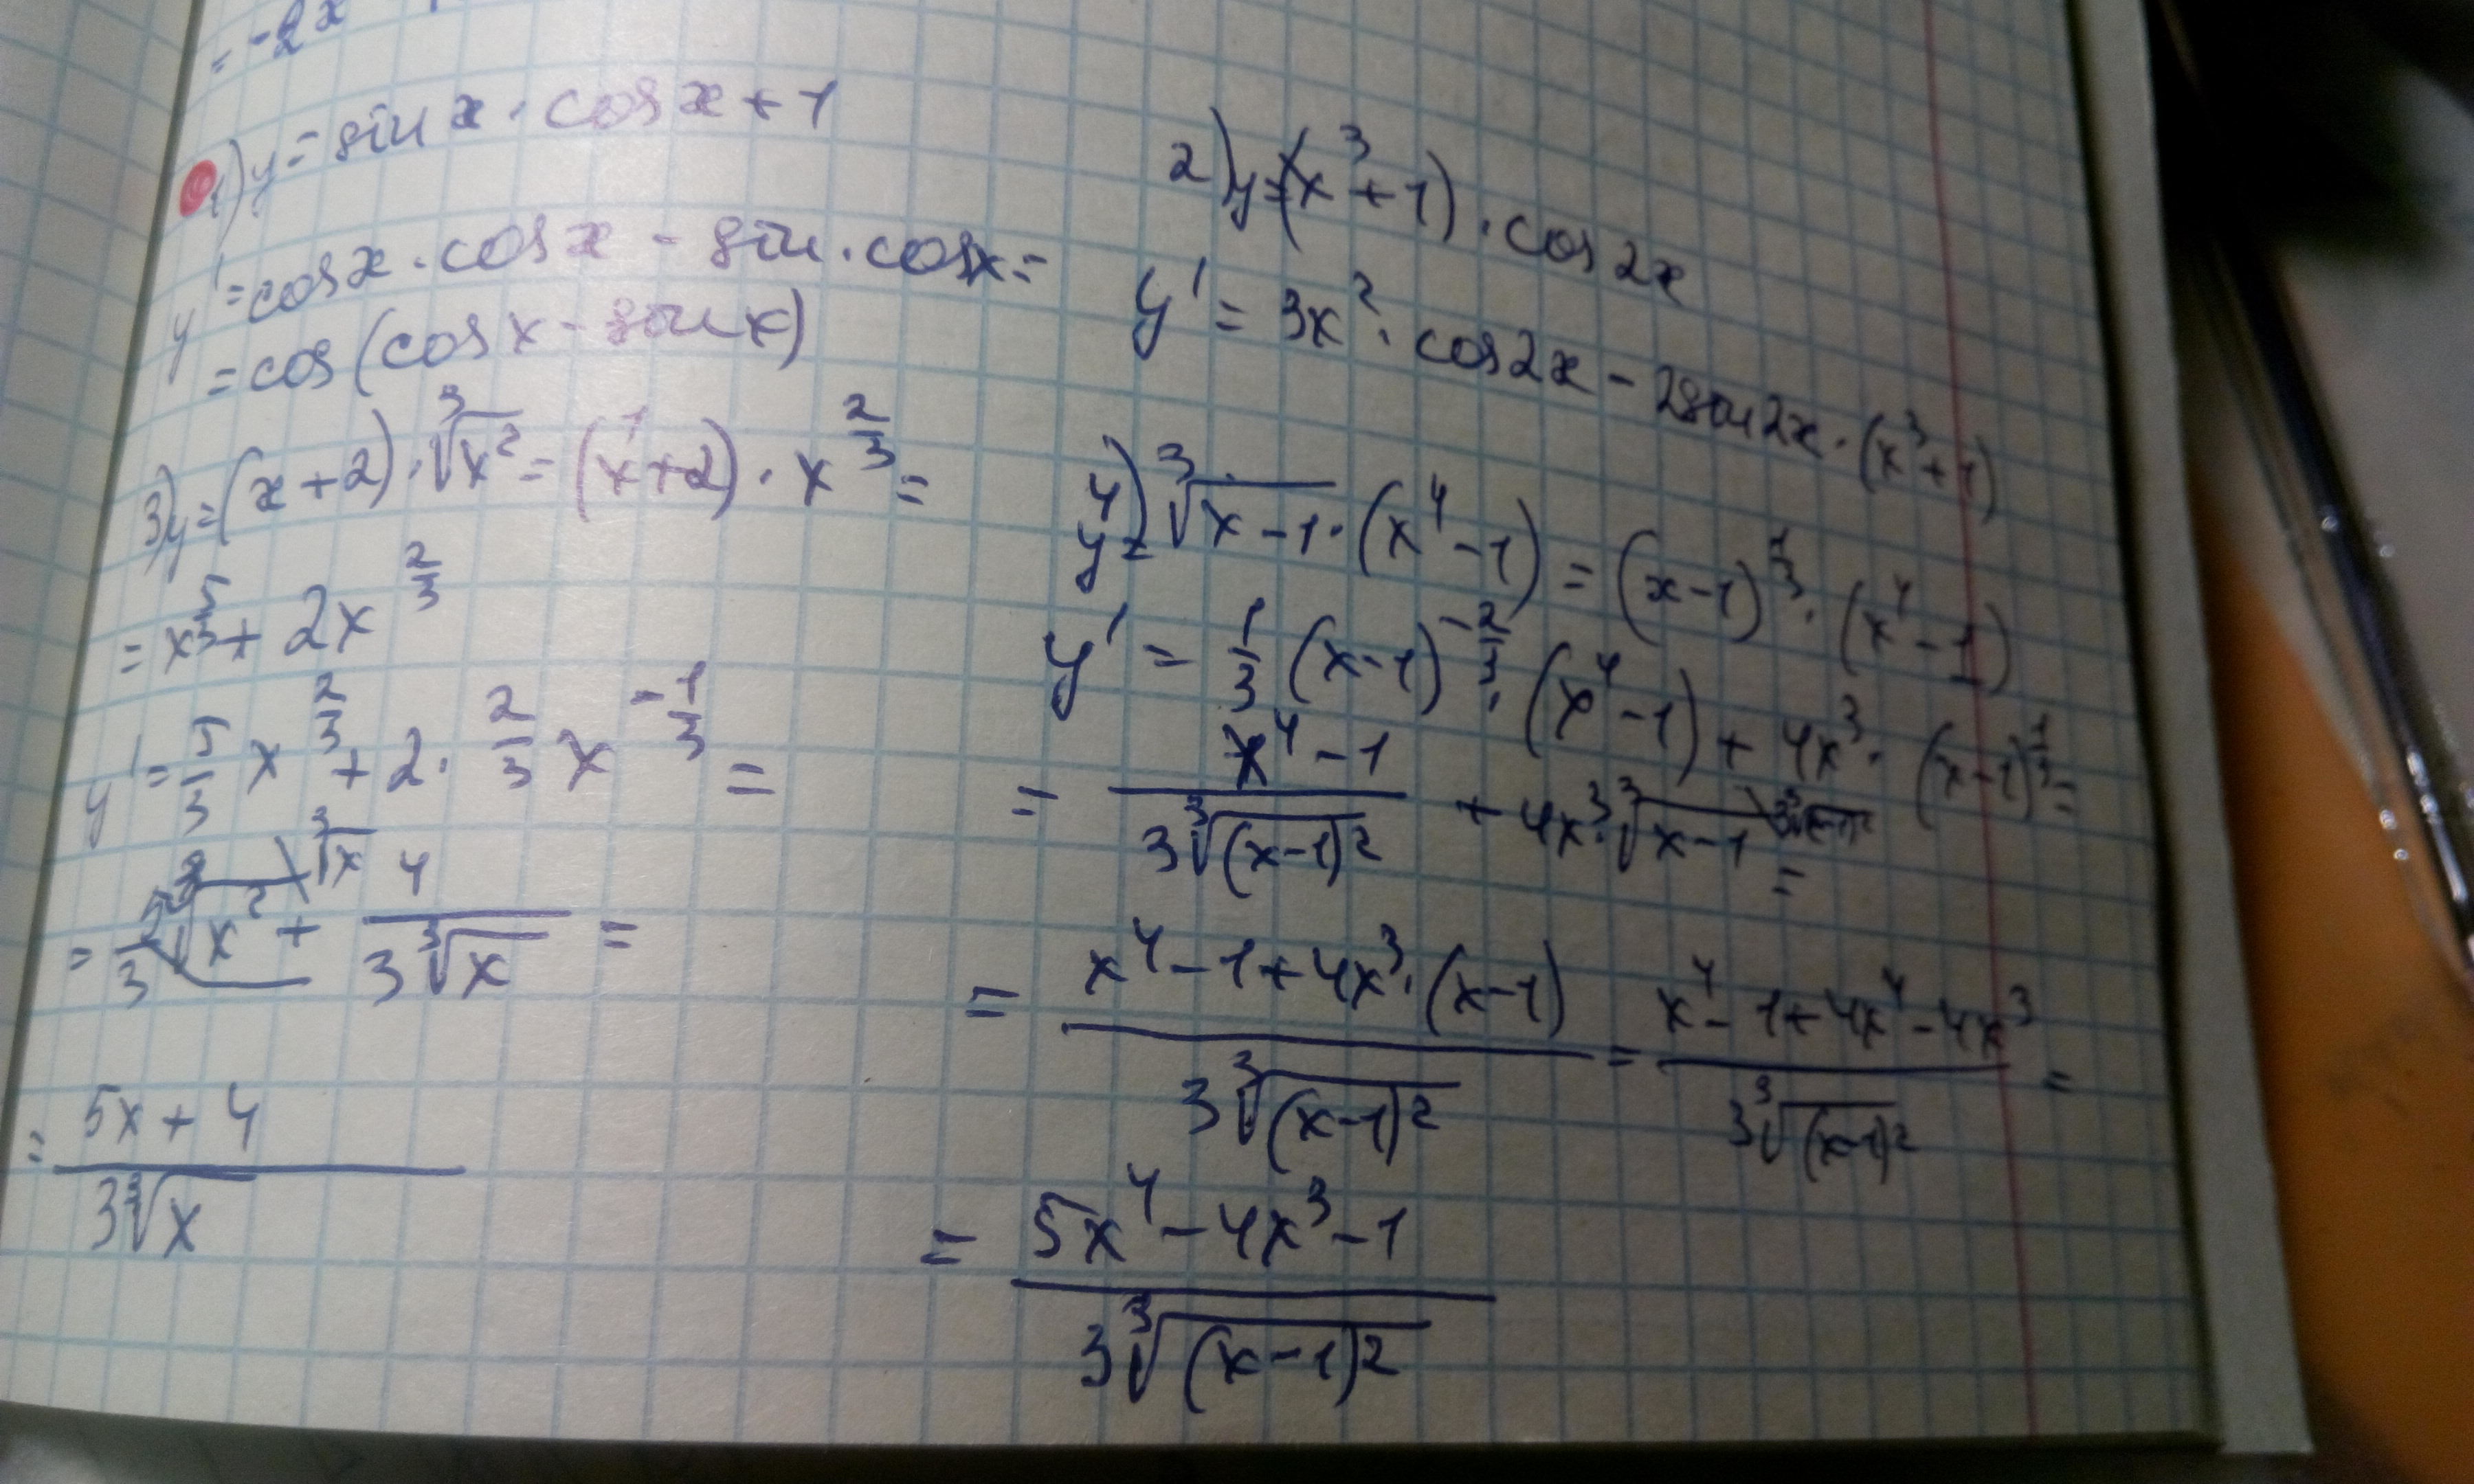 = -2x
1) y = sin x · cos x + 1
y' = cos x · cos x - sin · cos x =
= cos (cos x - sin x)
3) y = (x + 2) · ∛x² = (x + 2) · x^(2/3) =
= x^(5/3) + 2x^(2/3)
y' = 5/3 x^(2/3) + 2 · 2/3 x^(-1/3) =
= 5/3 ∛x² \∛x + 4/(3∛x) =
= (5x + 4)/(3∛x)
2) y = (x³ + 1) · cos 2x
y' = 3x² · cos 2x - 2 sin 2x · (x³ + 1)
4) y = ∛(x - 1) · (x⁴ - 1) = (x - 1)^(1/3) · (x⁴ - 1)
y' = 1/3 (x - 1)^(-2/3) · (x⁴ - 1) + 4x³ · (x - 1)^(1/3) =
= (x⁴ - 1)/(3∛(x - 1)²) + 4x³ · ∛(x - 1) \3∛(x-1)² =
= (x⁴ - 1 + 4x³ · (x - 1))/(3∛(x - 1)²) = (x⁴ - 1 + 4x⁴ - 4x³)/(3∛(x - 1)²) =
= (5x⁴ - 4x³ - 1)/(3∛(x - 1)²)